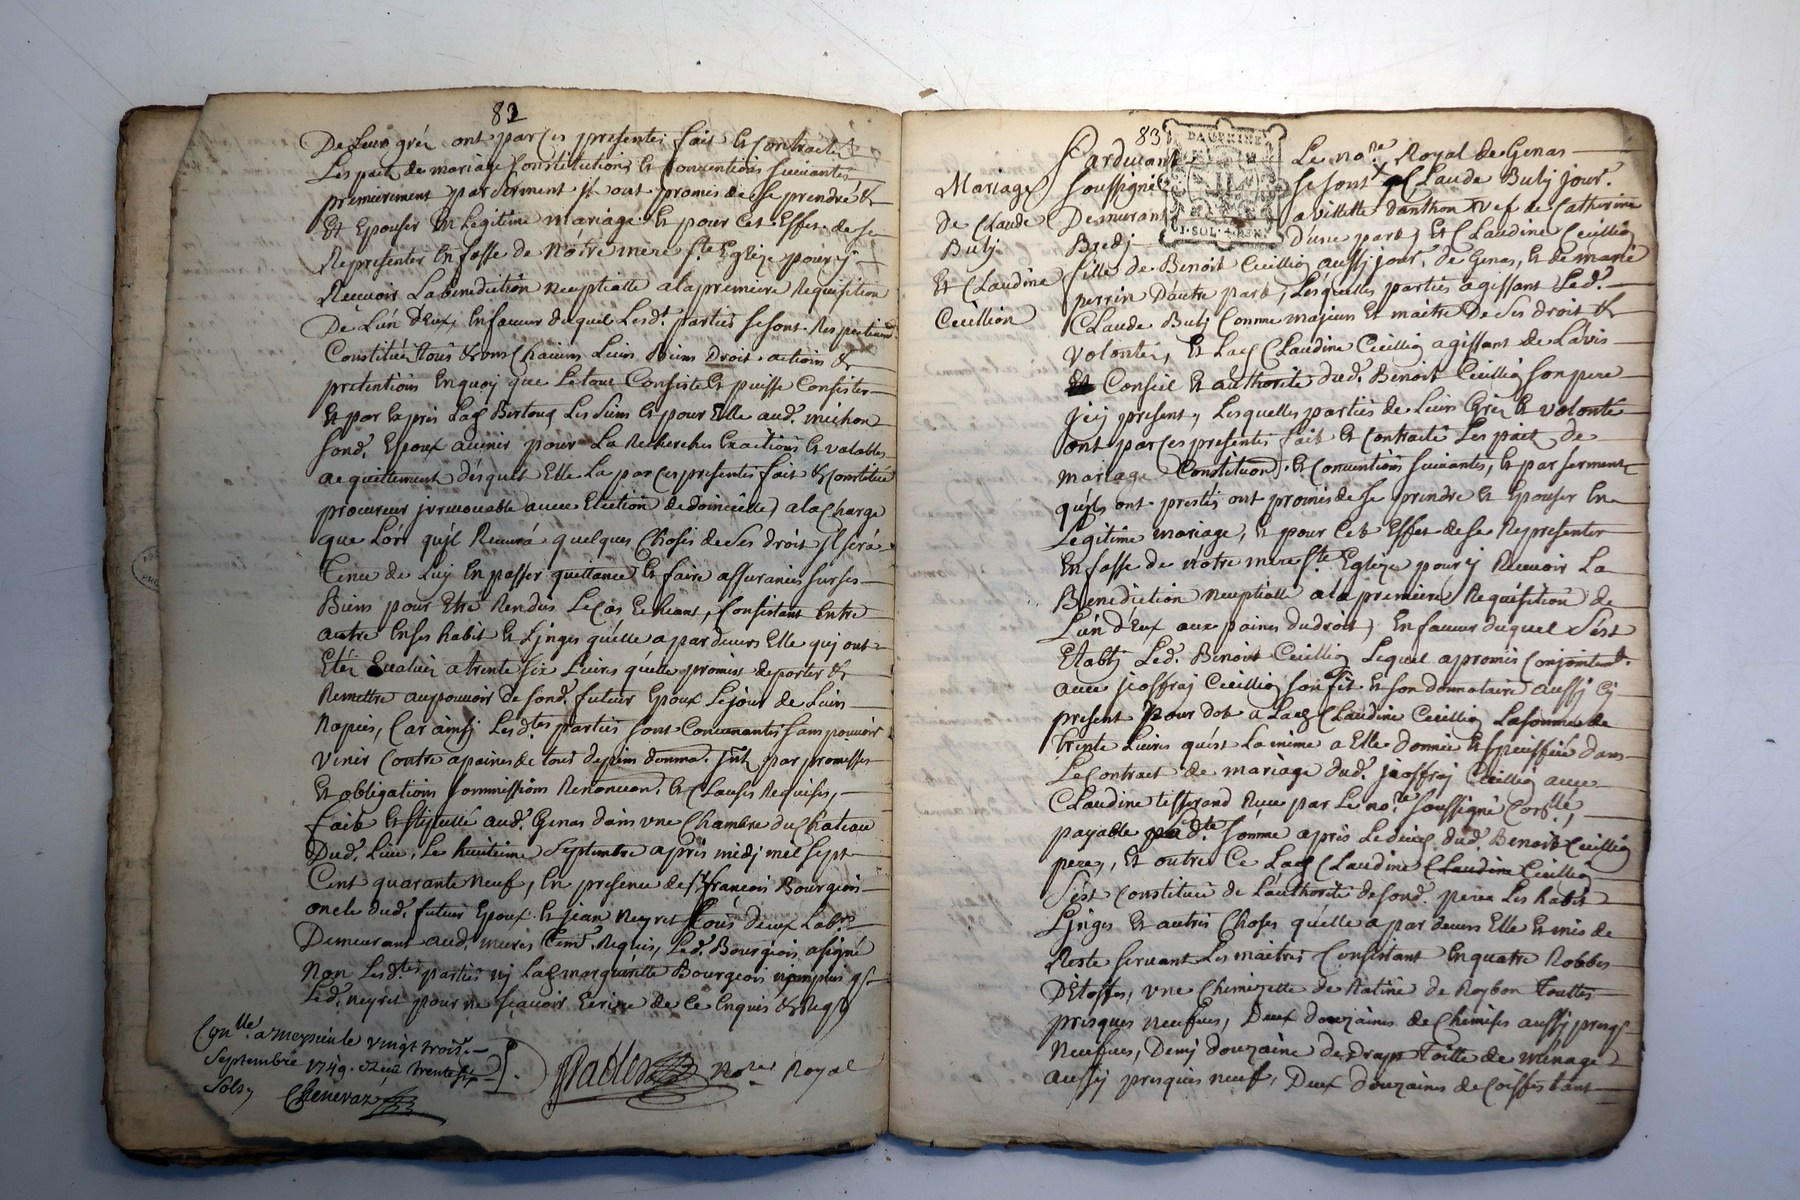 82
De Leur gréz ont par ces presentes fait Et Contracté
Les pact de mariage Constitutions Et Conventions suivantes
premierement par serment Jl ont promis de se prendre &
Et Epouser En Legitime mariage Et pour Cet Effet de se
Representer En fasse de Nôtre mere Ste Eglize pour y
Recevoir La benediction neuptialle a la premiere Requisition
De L'un d'Eux, En faveur duquel Lesdt. parties se sont Respectivemt
Constitué tous & uns Chaiuns Leurs Biens Droit actions &
pretentions En quoy que Le tout Consiste Et puisse Consister
Et par Exprès Lad. Bertouz Les Siens Et pour Elle aud. michon
sond. Epoux avenir pour La Recherches Exactions Et valables
acquittement desquels Elle La par Ces presentes fait & Constitué
procureur jrrevocable avec Election de domicille, a la Charge
que Lórs qu'jl Recevrá quelques Choses de ses droit jl será
Tenu de Luy En passer quittance Et faire assurances sur ses
Biens pour Etré Rendus Le Cas Echeant, Consistant Entre
autre En ses habit Et Ljnges qu'elle a par devers Elle quj ont
Etéz Evaluéz a trente six Livres qu'elle promise de porter &
Remettre au pouvoir de sond. futeur Epoux Le jour de Leurs
Nopces, Car ainsj Lesdtes parties sont Convenantes sans pouvoir
Venir Contre a peines de tous depens domma. Jnts par promesses
Et obligations soummissions Renonceon. Et Clauses Requises,
fait Et stipullé aud. Genas dans vne Chambre du Chateau
Dud. Lieu, Le huitieme Septembre apriis midj mil sept
Cent quarante Neuf, En presence de Sr françois Bourgeois
oncle dud. futeur Epoux Et jean Neyret tous deux Labrs
Demeurant aud. meures Temt. Requis, Led. Bourgeois a signé
Non Lesdtes parties nj Lad. marguéritte Bourgeois
Led. neyret pour ne sçavoir Ecrire de Ce Enquis & Reqs
Conllé a Meyzieu le vingt trois.
Septembre 1749. Reçu trente six
Sols,
Chenevaz
Nore Royal
83
DAUPHINE
1. SOL. 4. DEN.
Mariage
De Claude
Bulj
Et Claudine
Ceuillion
Pardevant Le nore. Royal de Genas
soussigné se sont Claude Bulj jour.
Demeurant a villette d'anthon vef de Catherine
Bredj D'une part, Et Claudine Ceuillion
fille de Benoit Ceuillion aussj jour. de Genas, Et de marie
perrin D'autre part, Lesquelles parties agissant Led.
Claude Bulj Comme majeur Et maitre De Ses droit &
volontés, Et Lad. Claudine Ceuillion agissant de L'avis
Conseil Et authorité dud. Benoit Ceuillion son pere
jcy present, Lesquelles parties de Leurs Gréz Et volonté
ont par Ces presentes fait Et Contracté Les pact de
mariage Constitution. Et Conventions suivantes, Et par serment
qu'ils ont prestés ont promis de se prendre Et Epouser En
Legitime mariage, Et pour Cet Effet de se Representer
En fasse de nôtre mere Ste. Eglize pour y Recevoir La
Benediction neuptialle a la premiere Requisition de
L'un d'Eux aux paines du droit, En faveur duquel s'est
Etablj Led. Benoit Ceuillion Lequel a promis Conjointemt.
avec jeoffraj Ceuillion son fis Et son donnataire aussj Cy
present Pour dot a Lad. Claudine Ceuillion La somme de
trente Livres qu'est La même a Elle donnée Et specifiée dans
Le Contract de mariage dud. jeoffraj Ceuillion avec
Claudine tisserand Reçu par Le nore. soussigné Conllé,
payable dte somme après Le deces dud. Benoit Ceuillion
pere, Et outre Ce Lad. Claudine Claudine Ceuillion
s'est Constituée de L'authorité de sond. peres Les habit
Ljnges Et autres Choses qu'elle a par devers Elle Et mis de
Reste servant Les maitres Consistant En quatre Robbes
D'Etoffes, vne Chemizette de Ratine de Roybon touttes
presques neufves, Deux douzaines de Chemises aussj presqs
Neufves, Demj douzaine de drap toille de ménage
aussj presques neuf, Deux douzaines de Coiffes tant